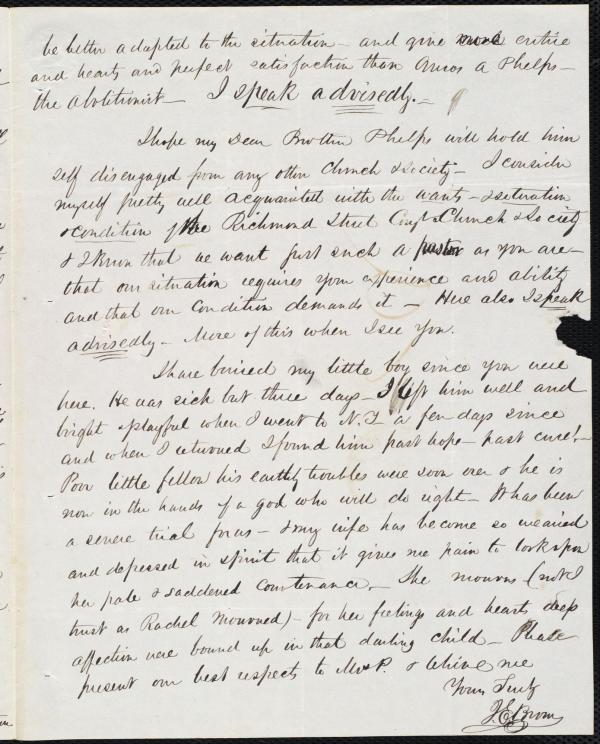 be better adapted to the situation – and give more entire
and hearty and perfect satisfaction than Amos A Phelps –
the abolitionist – I speak advisedly. –
I hope my Dear Brother Phelps will hold him
self disengaged from any other Church & Society – I consider
myself pretty well acquainted with the wants – & situation
& condition of the Richmond Street Cong. Church & Society
& I know that we want just such a pastor as you are –
that our situation requires your experience and ability
and that our condition demands it – Here also I speak
advisedly – More of this when I see you.
I have buried my little boy since you were
here. He was sick but three days – I left him well and
bright & playful when I went to N.Y. a few days since
and when I returned I found him past hope – past cure! –
Poor little fellow his earthly troubles were soon over & he is
now in the hands of a god who will do right – It has been
a severe trial for us – & my wife has become so wearied
and depressed in spirit that it gives me pain to look upon
her pale & saddened countenance. – She mourns (not I
trust as Rachel mourned) – for her feelings and hearts deep
affection were bound up in that darling child – Please
present our best respects to Mrs P. & believe me
Yours Truly
J. E. Brown